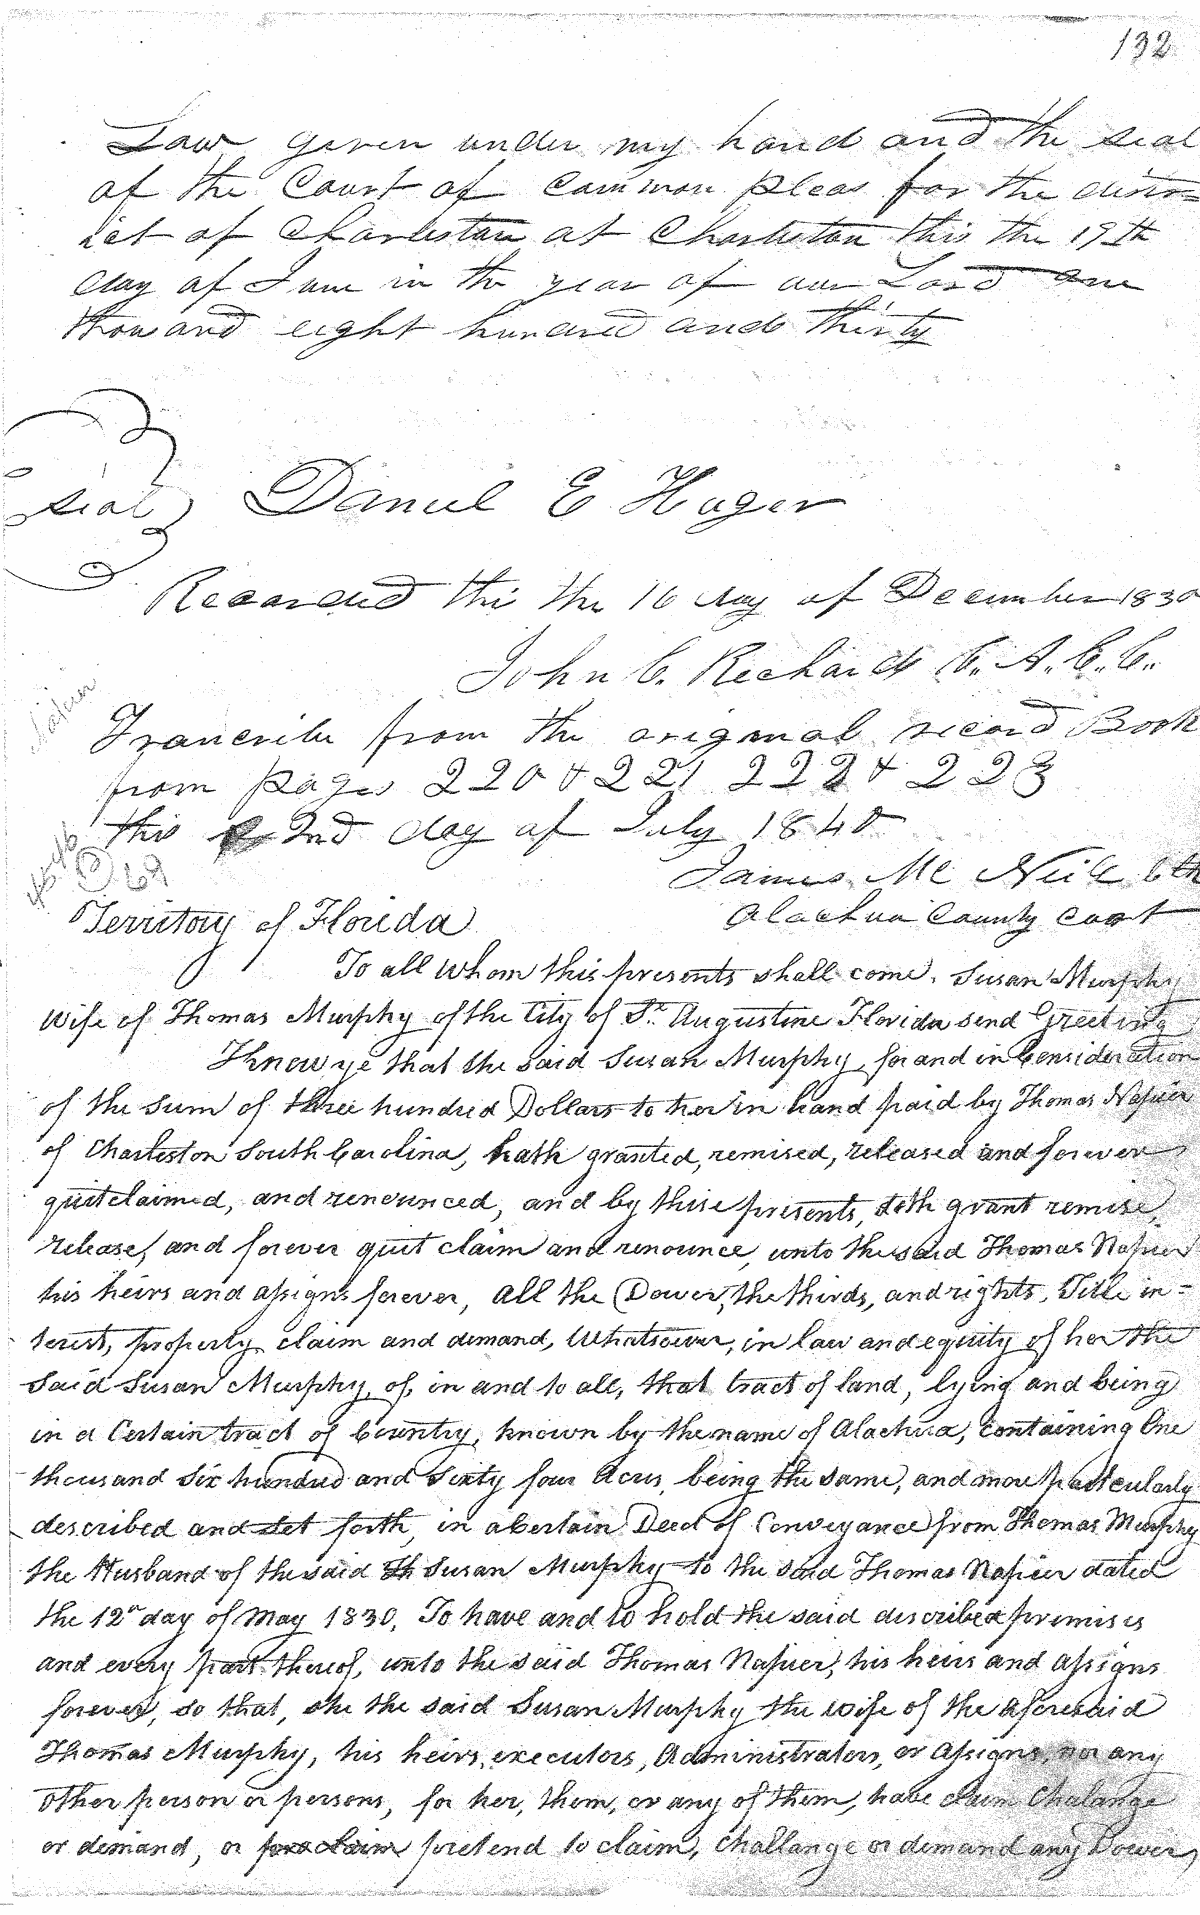 132
Law given under my hand and the seal
of the Court of Common pleas for the distr=
ict of Charleston at Charleston this the 19th
day of June in the year of our Lord one
thousand eight hundred and thirty
seal Daniel E Huger
Recorded this the 16 day of December 1830
John C. Richards C. A. C. C.
Napier
Trancribe from the original record Book
from pages 220 & 221 222 & 223
this 2nd day of July 1840
69
James Mc Neil Clk
Alachua County Court
Territory of Florida
To all whom this presents shall come. Susan Murphy
wife of Thomas Murphy of the City of St. Augustine Florida send Greeting
Know ye that the said Susan Murphy, for and in Consideration
of the Sum of three hundred Dollars to her in hand paid by Thomas Napier
of Charleston South Carolina, hath granted, remised, released and forever
quitclaimed, and renounced, and by these presents, doth grant remise,
release, and forever quit claim and renounce, unto the said Thomas Napier
his heirs and assigns forever, all the Dower, the thirds, and rights, Title in=
terest, property, claim and demand, Whatsoever, in law and equity of her the
Said Susan Murphy, of, in and to all, that tract of land, lying and being
in a Certain tract of Country, known by the name of Alachua, Containing One
thousand Six hundred and Sixty four Acres, being the same, and more particularly
described and set forth, in a Certain Deed of Conveyance from Thomas Murphy
the Husband of the said Th Susan Murphy to the said Thomas Napier dated
the 12th day of May 1830, To have and to hold the said described premises
and every part thereof, unto the said Thomas Napier, his heirs and assigns
forever, so that, she the said Susan Murphy the wife of the aforesaid
Thomas Murphy, his heirs, executors, Administrators, or Assigns, nor any
other person or persons, for her, them, or any of them, have claim Chalange
or demand, or pretend to claim, challange or demand any Dower,